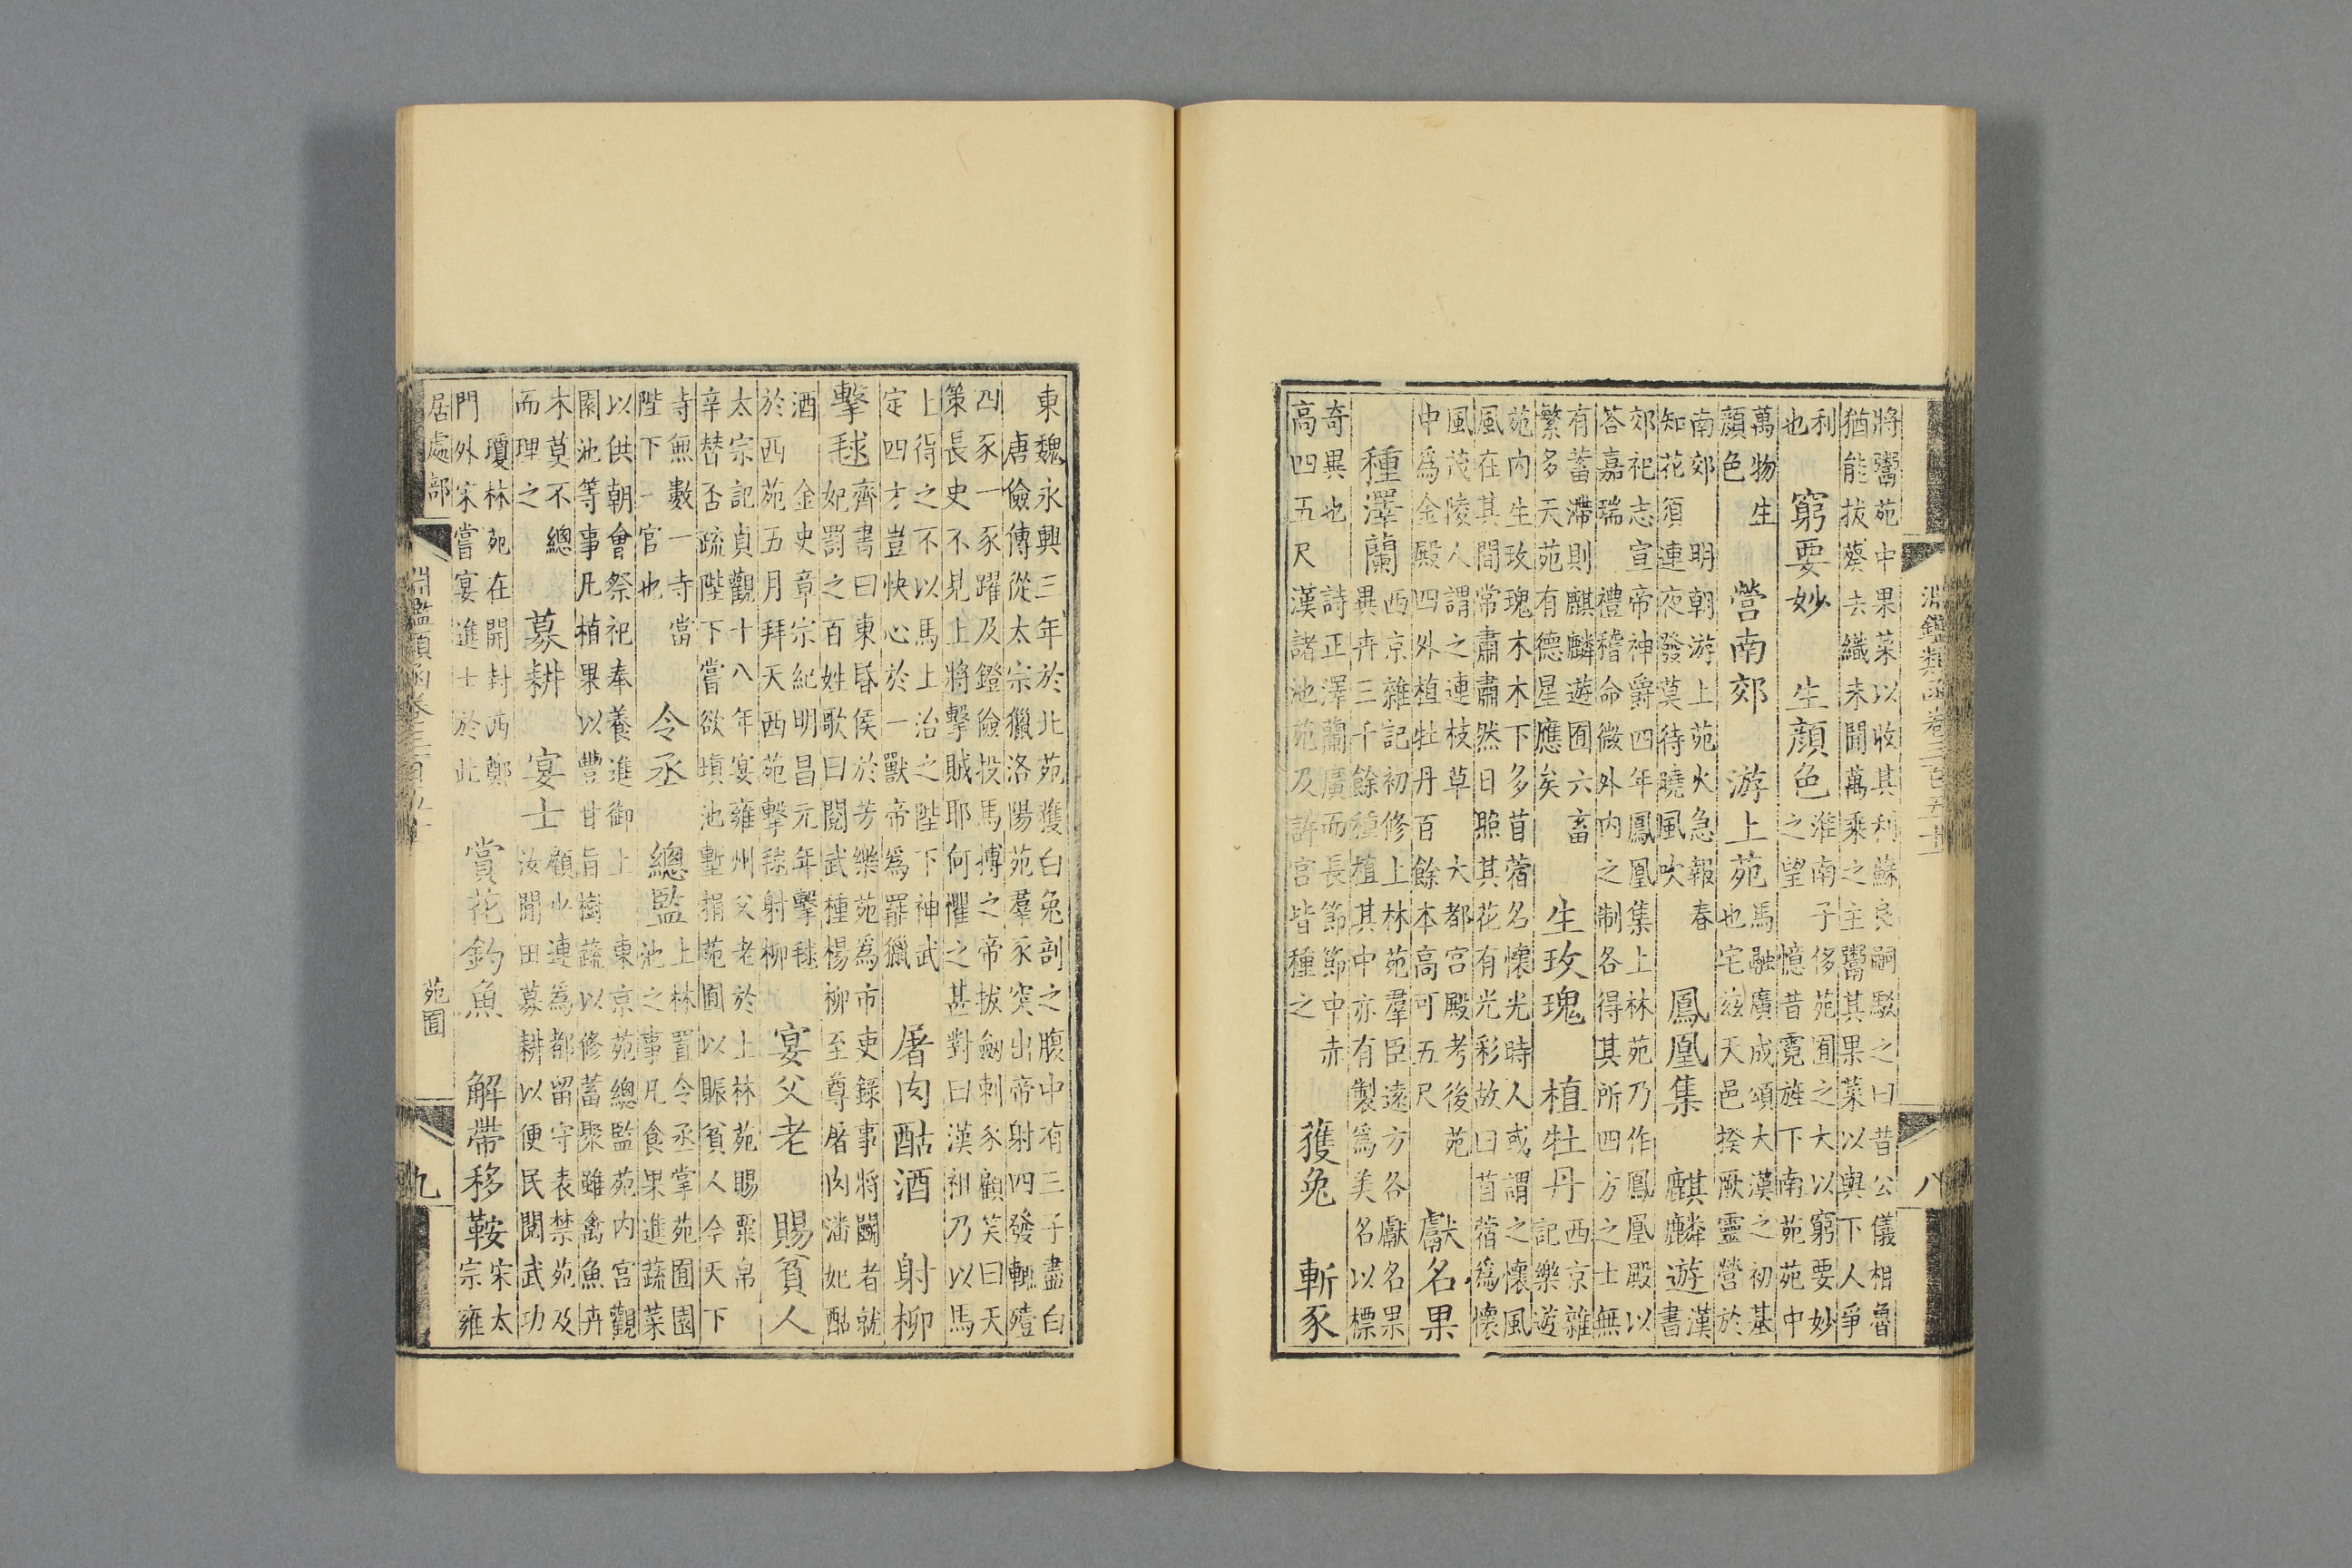 淵鑑類函卷三百五十 八
將鬻苑中果菜以收其利蘇良嗣駁之曰昔公儀相魯
猶能拔葵去織未聞萬乘之主鬻其果菜以與下人爭
利
也
窮要妙 生顏色
淮南子侈苑囿之大以窮要妙
之望 憶昔霓旌下南苑苑中
萬物生
顏色
營南郊 游上苑
馬融廣成頌大漢之初基
也宅茲天邑揆厥靈營於
南郊 明朝游上苑火急報春
知花須連夜發莫待曉風吹
鳳凰集 麒麟遊
漢
書
郊祀志宣帝神爵四年鳳凰集上林苑乃作鳳凰殿以
荅嘉瑞 禮稽命微外内之制各得其所四方之士無
有蓄滯則麒麟遊囿六畜
繁多天苑有德星應矣
生玫瑰 植牡丹
西京雜
記樂遊
苑内生玫瑰木木下多苜蓿名懷光時人或謂之懷風
風在其間常肅肅然日照其花有光彩故曰苜蓿爲懷
風茂陵人謂之連枝草 大都宮殿考後苑
中爲金殿四外植牡丹百餘本高可五尺
獻名果
種澤蘭
西京雜記初修上林苑羣臣遠方各獻名果
異卉三千餘種植其中亦有製爲美名以標
奇異也 詩正澤蘭廣而長節節中赤
高四五尺漢諸池苑及許宮皆種之
獲兔 斬豕
東魏永興三年於北苑獲白兔剖之腹中有三子盡白
唐儉傳從太宗獵洛陽苑羣豕突出帝射四發輒殪
四豕一豕躍及鐙儉投馬搏之帝拔劍刺豕顧笑曰天
策長史不見上將擊賊耶何懼之甚對曰漢祖乃以馬
上得之不以馬上治之陛下神武
定四方豈快心於一獸帝爲罷獵
屠肉酤酒 射柳
擊毬
齊書曰東昏侯於芳樂苑爲市吏錄事將鬭者就
妃罰之百姓歌曰閱武種楊柳至尊屠肉潘妃酤
酒 金史章宗紀明昌元年擊毬
於西苑五月拜天西苑擊毬射柳
宴父老 賜貧人
太宗記貞觀十八年宴雍州父老於上林苑賜粟帛
辛替否疏陛下嘗欲填池塹捐苑囿以賑貧人今天下
寺無數一寺當
陛下一宮也
令丞 總監
上林置令丞掌苑囿園
池之事凡食果進蔬菜
以供朝會祭祀奉養進御 上東京苑總監苑内宮觀
園池等事凡植果以豐甘旨樹蔬以修蓄聚雖禽魚卉
木莫不總
而理之
募耕 宴士
顧少連爲都留守表禁苑及
汝閒田募耕以便民閱武功
瓊林苑在開封西鄭
門外宋嘗宴進士於此
賞花釣魚 解帶移鞍
宋太
宗雍
居處部 淵鑑類函卷三百五十 苑囿 九